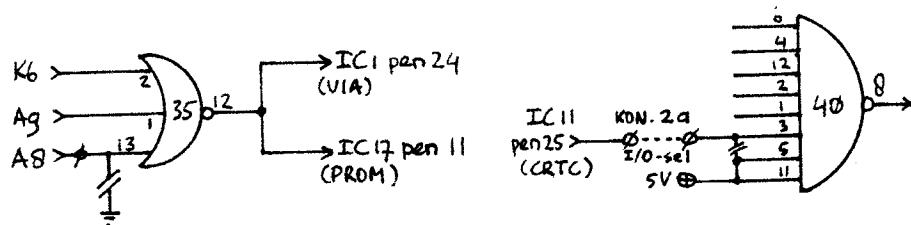 K6
A9
A8
2
1
13
35
12
IC1 pen 24
(VIA)
IC17 pen 11
(PROM)
IC11
pen25
(CRTC)
KON. 2a
I/O-sel
5V
0
4
12
2
1
3
5
11
40
8